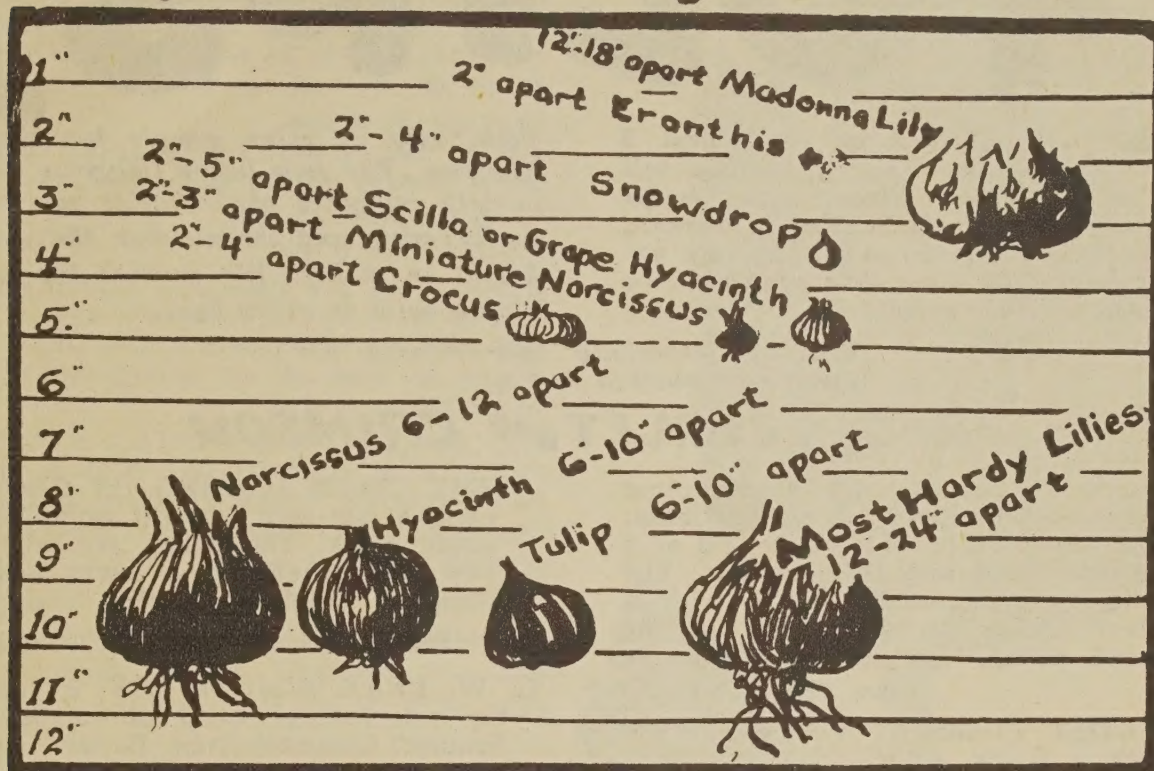 1"
2"
3"
4"
5."
6"
7"
8"
9"
10"
11"
12"
12"-18" apart Madonna Lily
2" apart Eranthis
2"-4" apart Snowdrop
2"-5" apart Scilla or Grape Hyacinth
2"-3" apart Miniature Narcissus
2"-4" apart Crocus
Narcissus 6-12 apart
Hyacinth 6-10" apart
Tulip 6-10" apart
Most Hardy Lilies
12-24" apart